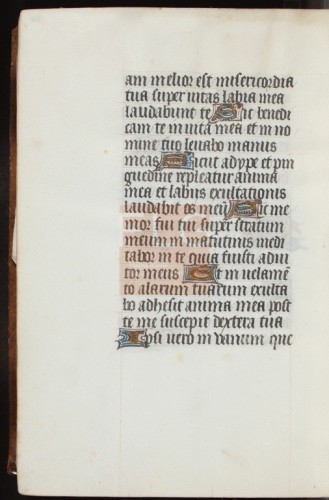 am melior est misericordia
tua super vitas labia mea
laudabunt te Sic benedi
cam te in vita mea et in no
mine tuo levabo manus
meas Sicut adype et pin
guedine repleatur anima
mea et labiis exultationis
laudabit os meum Sic me
mor fui tui super stratum
meum in matutinis medi
tabor in te quia fuisti adiu
tor meus Et in velamē
to alarum tuarum exulta
bo adhesit anima mea post
te me suscepit dextera tua
Ipsi vero in vanum que